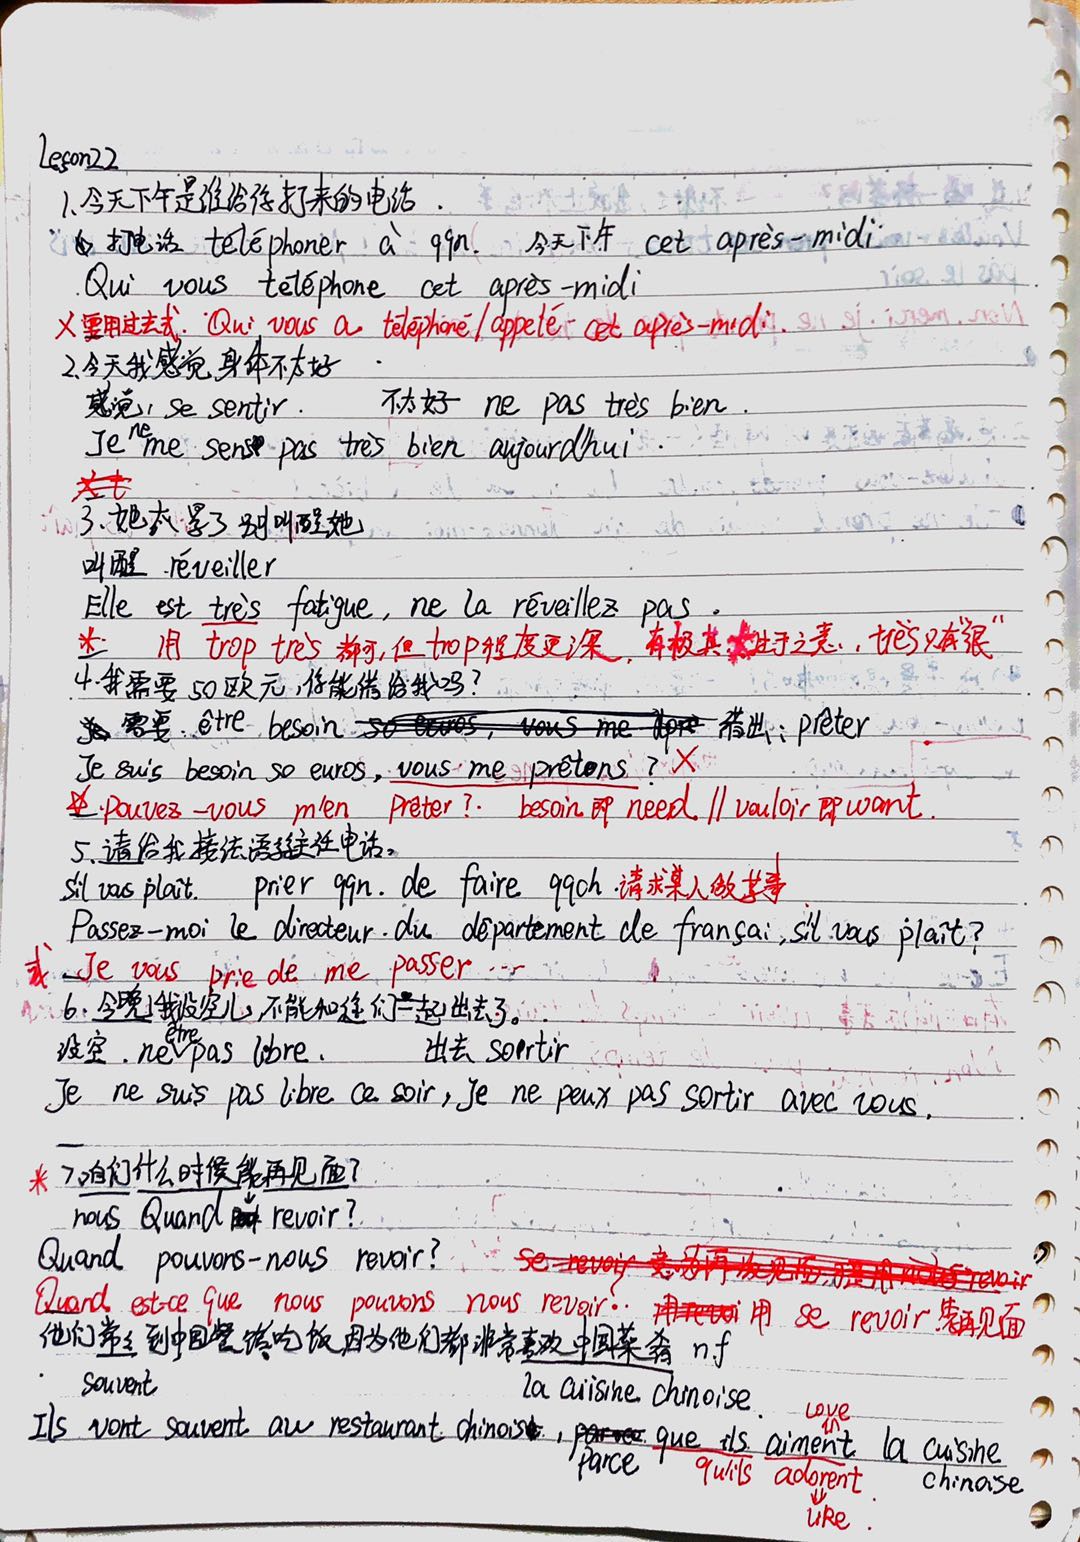 Leçon22
1.今天下午是谁给你打来的电话.
打电话 téléphoner à qqn. 今天下午 cet après-midi.
Qui vous téléphone cet après-midi
×要用过去式. Qui vous a téléphoné/appelé cet après-midi.
2.今天我感觉身体不太好
感觉: se sentir. 不太好 ne pas très bien.
Je ne me sens pas très bien aujourd'hui.
3.她太累了别叫醒她
叫醒 réveiller
Elle est très fatigue, ne la réveillez pas.
* 用 trop très 都可,但trop程度更深, 有极其 过于之意., très只有"很"
4.我需要50欧元,你能借给我吗?
需要. être besoin 借出: prêter
Je suis besoin 50 euros, vous me prêtons? ×
*.pouvez-vous m'en prêter?. besoin即need.//vouloir即want.
5.请给我接法语系主任电话。
s'il vous plaît. prier qqn. de faire qqch.请求某人做某事
Passez-moi le directeur.du département de françai, s'il vous plaît?
或 Je vous prie de me passer ...
6.今晚我没空儿,不能和你们一起出去了。
没空. ne être pas libre. 出去 sortir
Je ne suis pas libre ce soir, Je ne peux pas sortir avec vous.
* 7.咱们什么时候能再见面?
nous Quand revoir?
Quand pouvons-nous revoir?
Quand est-ce que nous pouvons nous revoir?. 用 se revoir 表再见面
他们常去到中国餐馆吃饭,因为他们都非常喜欢中国菜肴 nf
souvent la cuisine chinoise.
Love
Ils vont souvent au restaurant chinois, parce que ils aiment la cuisine chinoise
qu'ils adorent.
like.